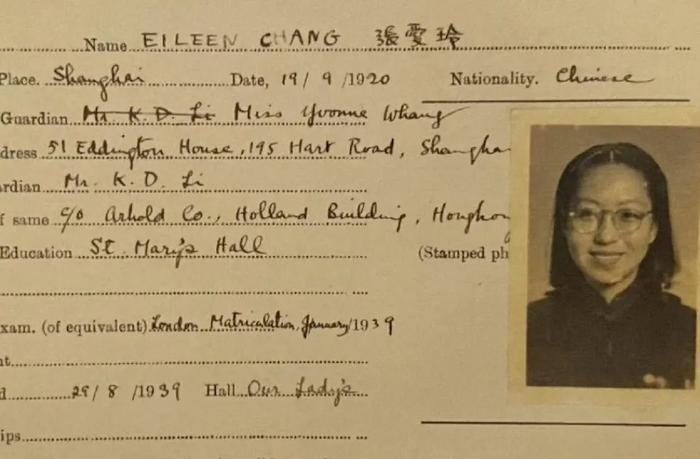 Name EILEEN CHANG 張愛玲
Place. Shanghai Date, 19/9/1920 Nationality. Chinese
Guardian Mr. K. D. Li Miss Yvonne Whang
dress 51 Eddington House, 195 Hart Road, Shangha
rdian Mr. K. D. Li
f same c/o Arhold Co., Holland Building, Hongkong
Education St. Mary's Hall
(Stamped ph
xam. (of equivalent) London Matriculation, January/1939
nt
d 29/8/1939 Hall Our Lady's
ips